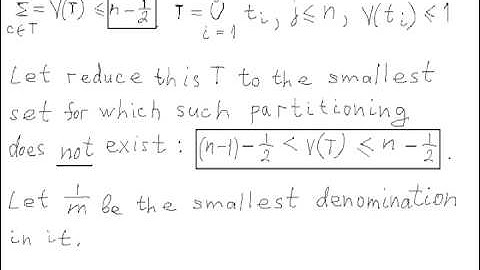 Σ = V(T) ≤ n - 1/2 . T = ∪ tᵢ, j ≤ n, V(tᵢ) ≤ 1
c∈T i = 1
Let reduce this T to the smallest
set for which such partitioning
does not exist : (n-1) - 1/2 < V(T) ≤ n - 1/2 .
Let 1/m be the smallest denomination
in it.